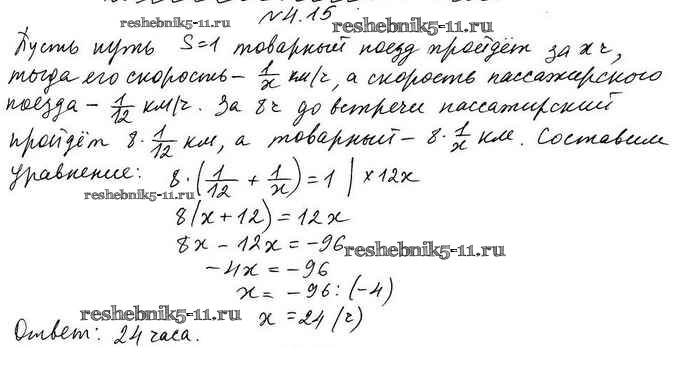 reshebnik5-11.ru
№4.15 reshebnik5-11.ru
Пусть путь S=1 товарный поезд пройдёт за x ч,
тогда его скорость – 1/x км/ч, а скорость пассажирского
поезда – 1/12 км/ч. За 8ч до встречи пассажирский
пройдёт 8·1/12 км, а товарный – 8·1/x км. Составим
уравнение: 8·(1/12 + 1/x) = 1 | ×12x
reshebnik5-11.ru
8(x+12) = 12x
8x – 12x = –96
reshebnik5-11.ru
–4x = –96
x = –96 : (–4)
reshebnik5-11.ru
x = 24 (ч)
Ответ: 24 часа.